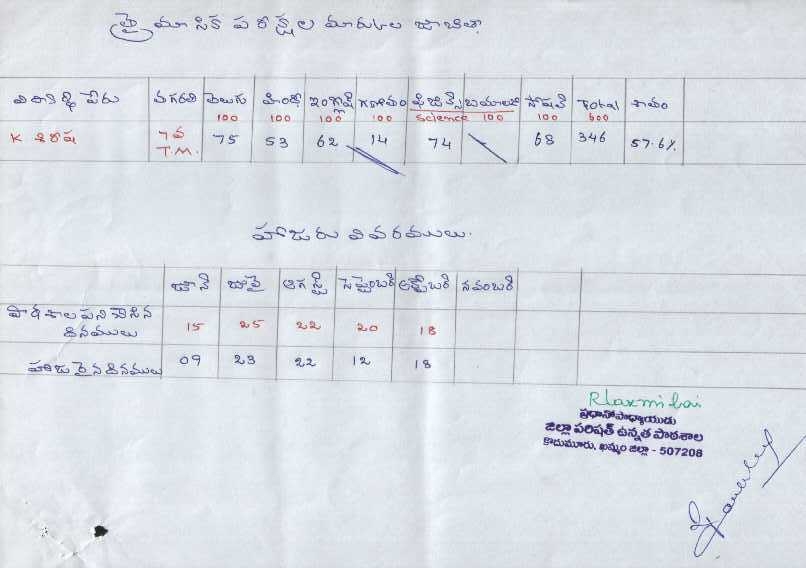 త్రై మాసిక పరీక్షల మార్కుల జాబితా
విద్యార్థి పేరు తరగతి తెలుగు హిందీ ఇంగ్లీషు గణితం ఫిజిక్స్ బయాలజి సోషల్ Total శాతం
100 100 100 100 Science 100 100 600
K శిరీష 7వ 75 53 62 14 74 68 346 57.6%
T.M.
హాజరు వివరములు.
జూన్ జూలై ఆగస్ట్ సెప్టెంబర్ అక్టోబర్ నవంబర్
పాఠశాల పనిచేసిన
దినములు 15 25 22 20 18
హాజరైన దినములు 09 23 22 12 18
R laxmi bai
ప్రధానోపాధ్యాయుడు
జిల్లా పరిషత్ ఉన్నత పాఠశాల
కాచుమూరు, ఖమ్మం జిల్లా - 507208